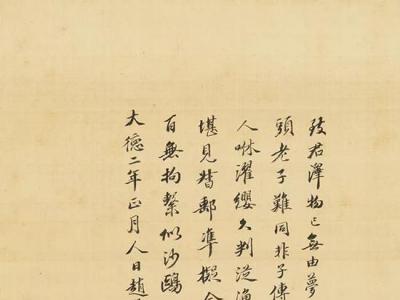 致君澤物已無由夢
頭老子難同非子傳
人咻濯纓久判從漁
堪見督郵準擬今
百無拘繫似沙鷗
大德二年正月人日趙